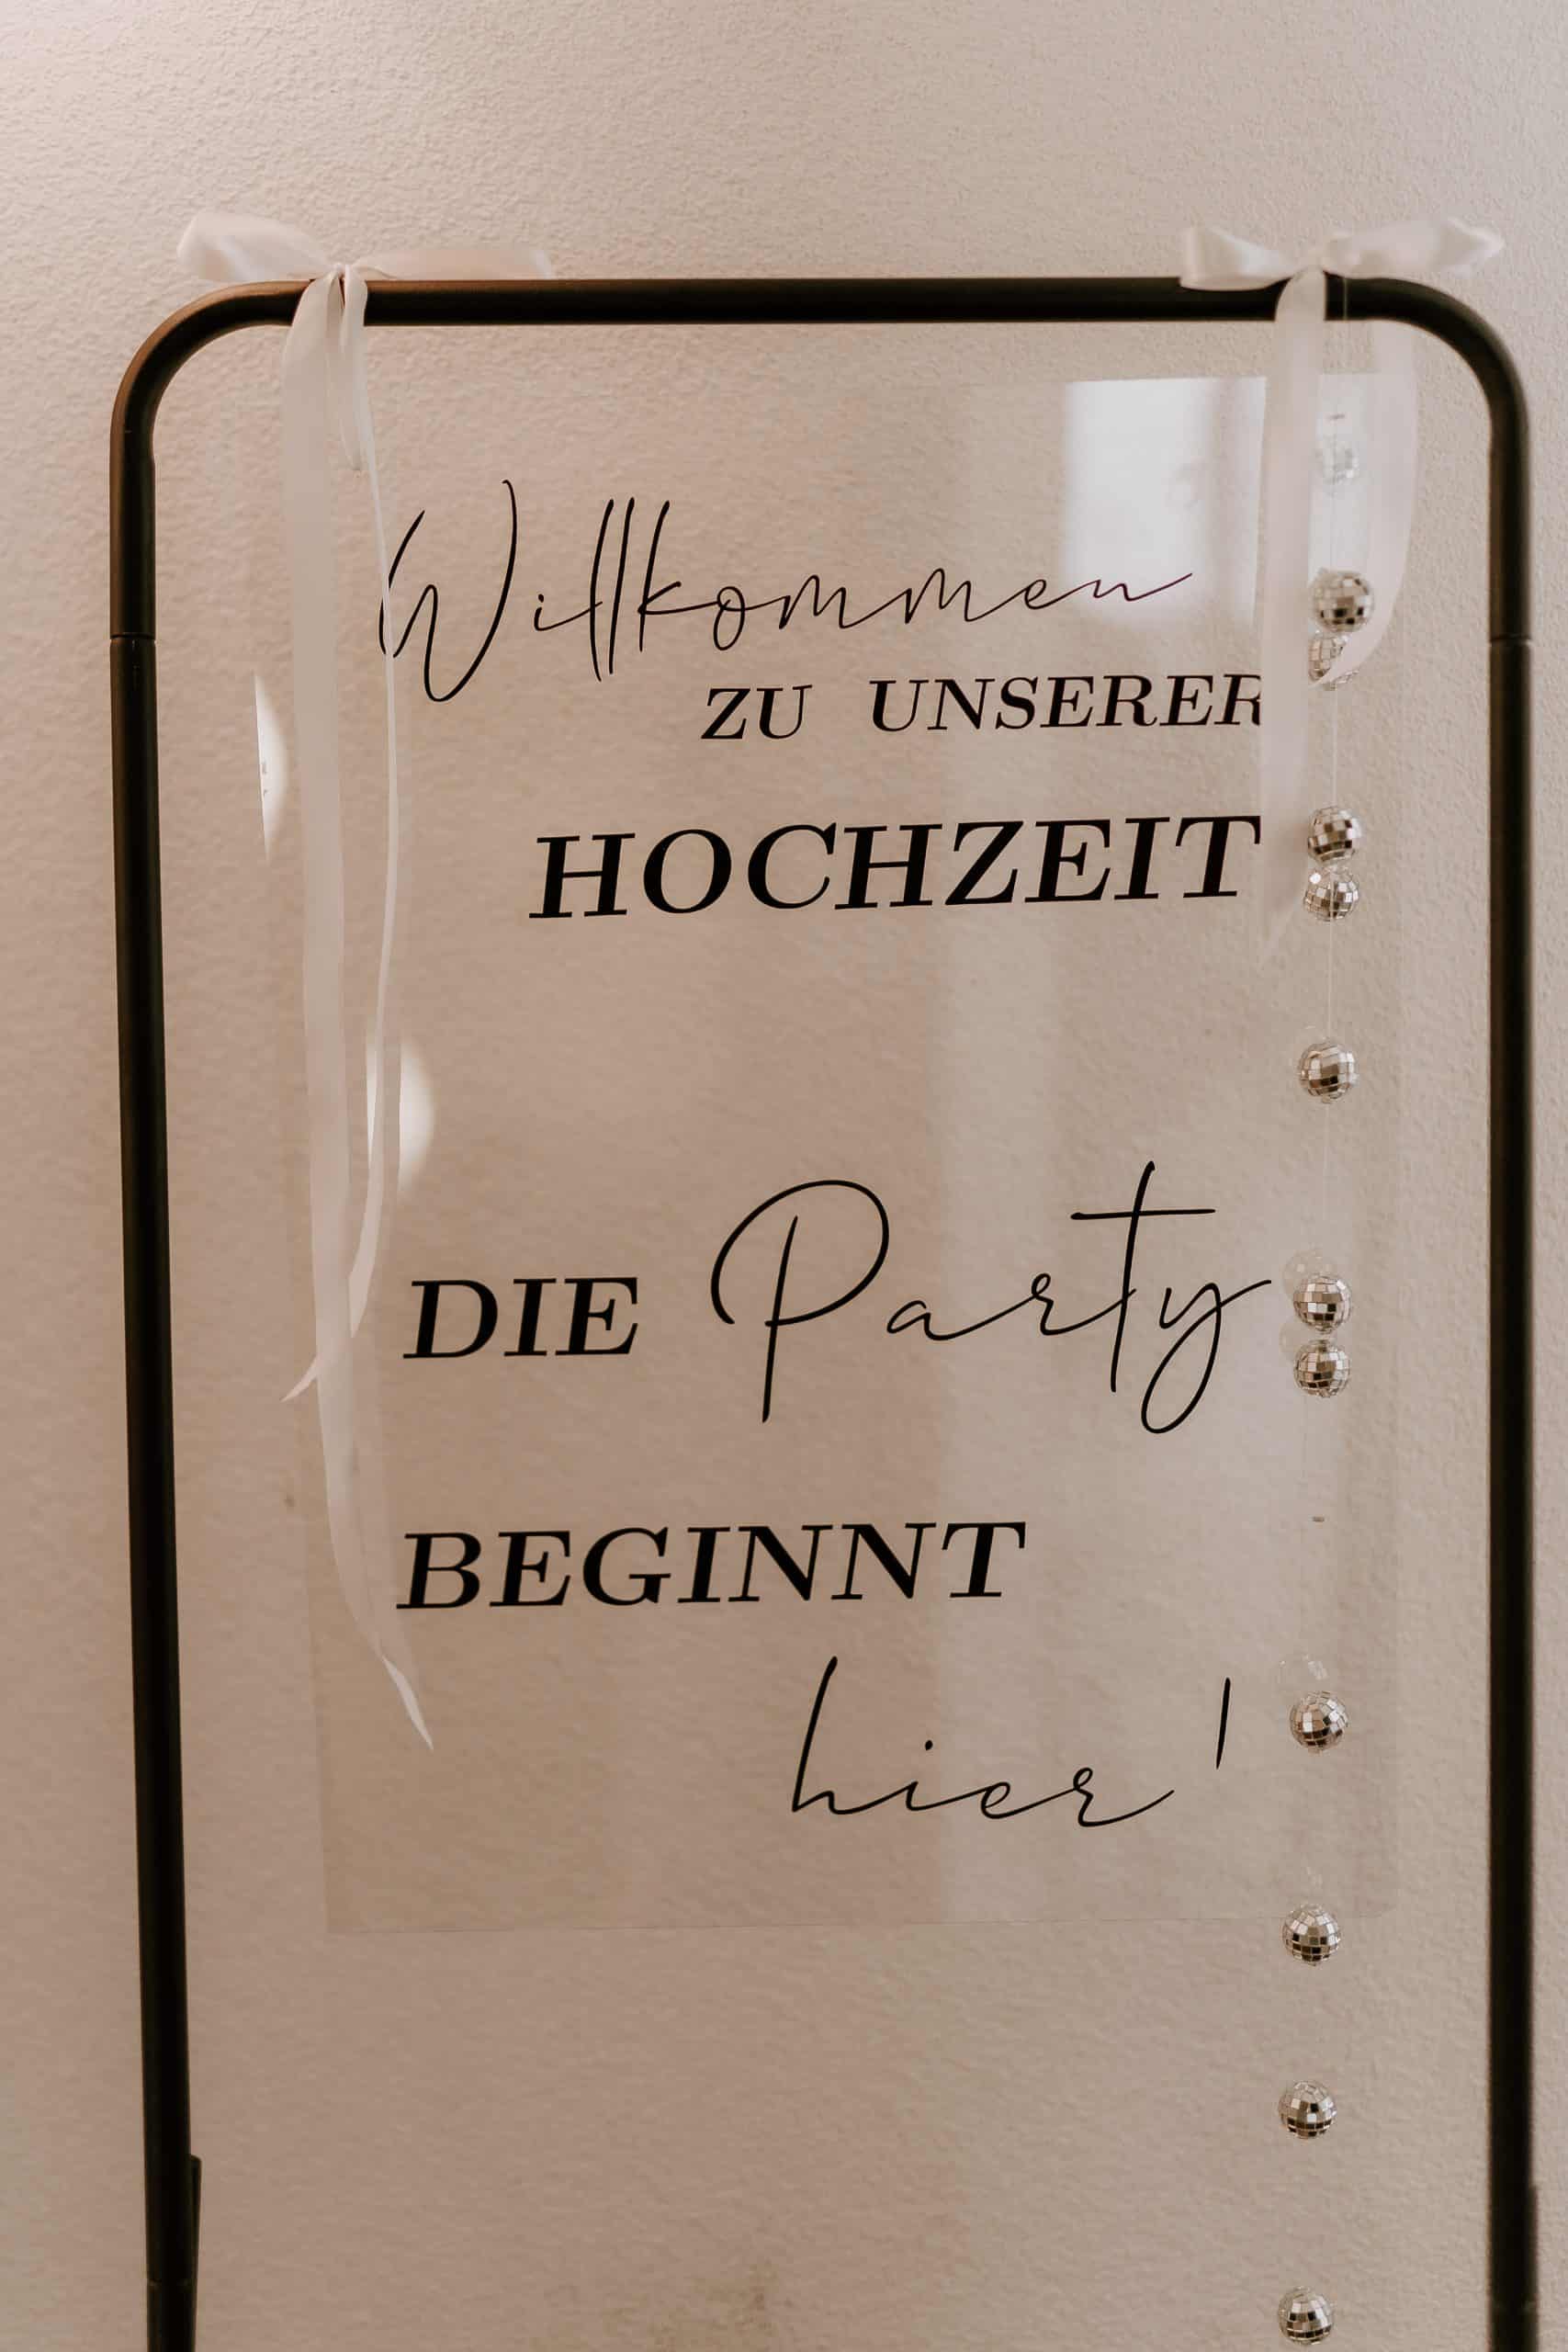 Willkommen
ZU UNSERER
HOCHZEIT
DIE Party
BEGINNT
hier!